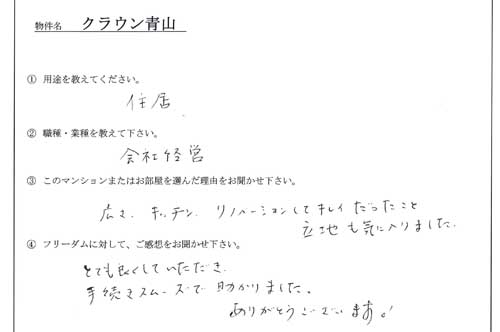 物件名 クラウン青山
① 用途を教えてください。
住居
② 職種・業種を教えて下さい。
会社経営
③ このマンションまたはお部屋を選んだ理由をお聞かせ下さい。
広さ、キッチン、リノベーションしてキレイだったこと
立地も気に入りました。
④ フリーダムに対して、ご感想をお聞かせ下さい。
とても良くしていただき、
手続きスムーズで助かりました。
ありがとうございます!